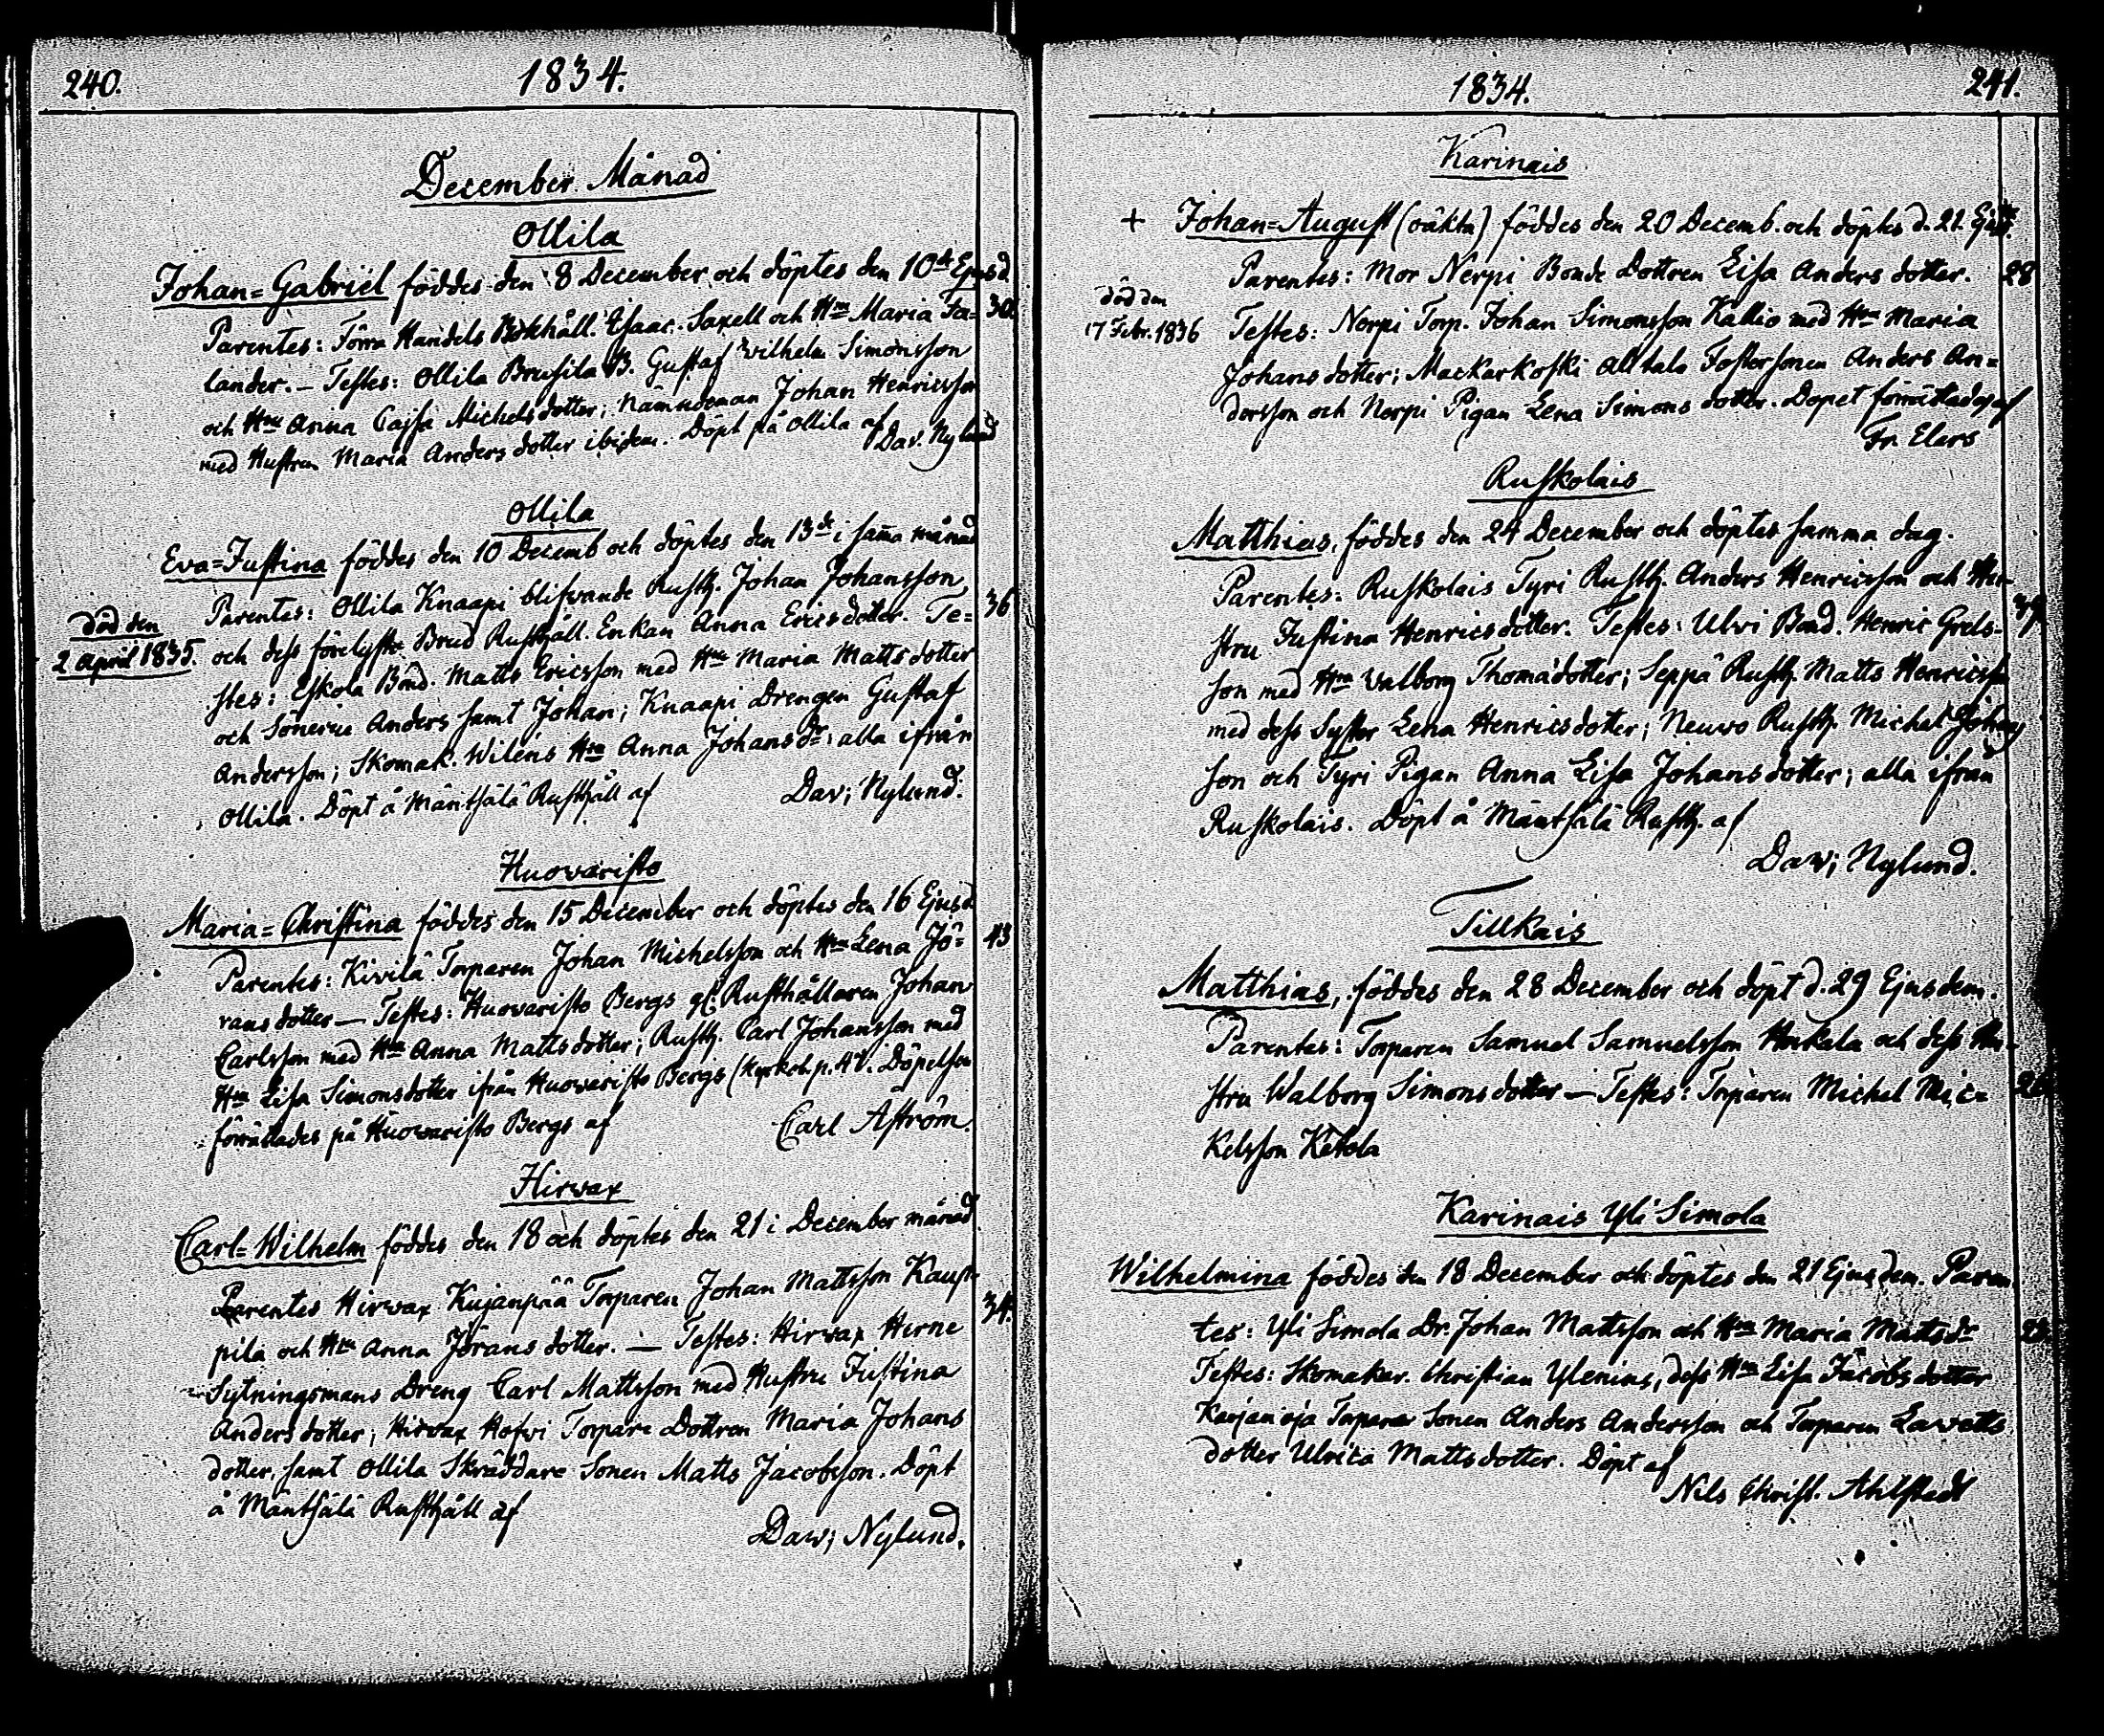 240.
1834.
December Månad
Ollila
Johan=Gabriel föddes den 8 December och döptes den 10de Ejusd
Parentes: Förra Handels Bokhåll. Esaac. Saxell och Hru Maria Fa= 30.
lander. – Testes: Ollila Brusila B. Gustaf Wilhelm Simonsson
och Hru Anna Cajsa Michelsdotter; Nämndeman Johan Henricsson
med Hustrun Maria Anders dotter ibidem. Döpt på Ollila af
Dav. Nylund
Ollila
Eva=Justina föddes den 10 Decemb och döptes den 13de i sama månad
Parentes: Ollila Knaapi blifvande Rusth. Johan Johansson 36
död den
2 April 1835.
och dess förelyste Brud Rusthåll. Enkan Anna Ericsdotter. Te=
stes: Eskola Bond. Matts Ericsson med Hru Maria Mattsdotter
och Sönerne Anders samt Johan; Knaapi Drengen Gustaf
Andersson; Skomak. Wilens Hru Anna Johansdr: alla ifrån
Ollila. Döpt å Mäntsälä Rusthåll af Dav; Nylund.
Huovaristo
Maria=Christina föddes den 15 December och döptes den 16 Ejusd
Parentes: Kivilä Torparen Johan Michelsson och Hru Lena Jö= 43
rans dotter — Testes: Huovaristo Bergs gl. Rusthållaren Johan
Carlsson med Hru Anna Mattsdotter; Rusth. Carl Johansson med
Hru Lisa Simonsdotter ifrån Huovaristo Bergs (Kyrkob. p. 42. Döpelsen
förrättades på Huovaristo Bergs af Carl Aström.
Hirwax
Carl=Wilhelm föddes den 18 och döptes den 21 i December månad
Parentes Hirwax Kujanpää Torparen Johan Mattsson Kaup= 34.
pila och Hru Anna Jörans dotter. — Testes: Hirwax Herne
Sytningsmans Dreng Carl Mattsson med Hustru Justina
Andersdotter; Hirvax Hofvi Torpare Dottren Maria Johans
dotter, samt Ollila Skräddare Sonen Matts Jacobsson. Döpt
å Mäntsälä Rusthåll af
Daw; Nylund.
1834.
241.
Karinais
+ Johan=August (oäkta) föddes den 20 Decemb. och döptes d. 21.
Parentes: Mor Nerpi Bonde Dottren Lisa Anders dotter. 28
död den
17 Febr. 1836
Testes: Nerpi Torp. Johan Simonsson Kallio med Hru Maria
Johans dotter; Mackarkoski Alltala Fostersonen Anders An=
dersson och Nerpi Pigan Lena Simons dotter. Dopet förrättades af
Fr. Elers
Ruskolais
Matthias, föddes den 24 December och döptes samma dag.
Parentes: Ruskolais Tyri Rusth. Anders Henricsson och Hu-
stru Justina Henricsdotter. Testes: Ulvi Bond. Henric Grels-
son med Hru Walborg Thomædotter; Seppä Rusth. Matts Henricsson
med dess Syster Lena Henricsdotter; Neuvo Rusth. Michel Johans
son och Tyri Pigan Anna Lisa Johansdotter; alla ifrån
Ruskolais. Döpt å Mäntsälä Rusth. af
Daw; Nylund.
Tillkais
Matthias, föddes den 28 December och döpt d. 29 Ejusdem.
Parentes: Torparen Samuel Samuelsson Horkala och dess Hu-
stru Walborg Simons dotter — Testes: Torparen Michel Mic=
kelsson Ketola
Karinais Yli Simola
Wilhelmina föddes den 18 December och döptes den 21 Ejusdem. Paren
tes: Yli Simola Dr. Johan Mattsson och Hru Maria Mattsdr
Testes: Skomakar. Christian Ylenius, dess Hru Lisa Jacobs dotter
Karjanoja Torpare Sonen Anders Andersson och Torparen
dotter Ulrica Mattsdotter. Döpt af
Nils Christ. Ahlstedt